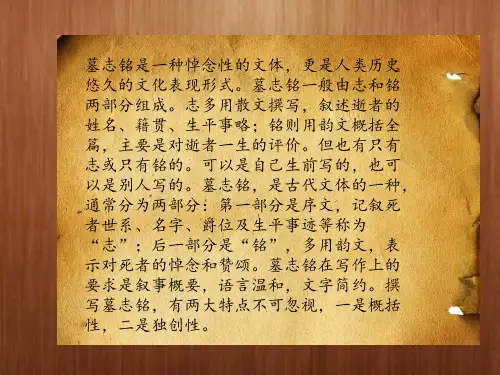 墓志铭是一种悼念性的文体，更是人类历史
悠久的文化表现形式。墓志铭一般由志和铭
两部分组成。志多用散文撰写，叙述逝者的
姓名、籍贯、生平事略；铭则用韵文概括全
篇，主要是对逝者一生的评价。但也有只有
志或只有铭的。可以是自己生前写的，也可
以是别人写的。墓志铭，是古代文体的一种，
通常分为两部分：第一部分是序文，记叙死
者世系、名字、爵位及生平事迹等称为
“志”；后一部分是“铭”，多用韵文，表
示对死者的悼念和赞颂。墓志铭在写作上的
要求是叙事概要，语言温和，文字简约。撰
写墓志铭，有两大特点不可忽视，一是概括
性，二是独创性。